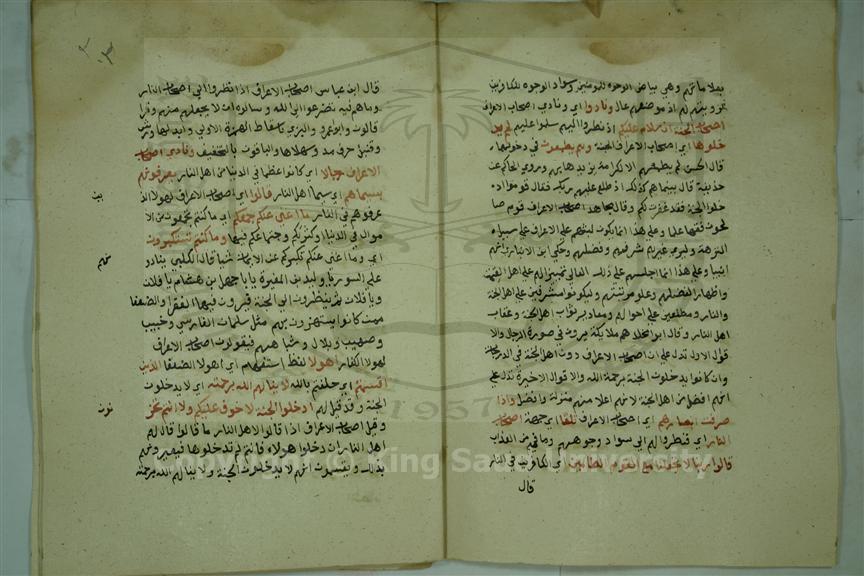 بعلاماتهم وهي بياض الوجوه للمومنين وسواد الوجوه للكافرين
اذ موضعهم عال ونادوا اي ونادي اصحاب الاعراف
اصحاب الجنة ان سلام عليكم اذ نظروا اليهم سلموا عليهم لم يد
خلوها اي اصحاب الاعراف الجنة وهم يطمعون في دخولها
قال الحسن لم يطمعهم الا لكرامة يريدها بهم وروي الحاكم عن
حذيفة قال بينما هم كذلك اذ طلع عليهم ربك فقال قوموا اد
خلوا الجنة فقد غفرت لكم وقال مجاهد اصحاب الاعراف قوم صا
لحون فقها علما وعلي هذا انما يكون لبثهم علي الاعراف علي سبيل
النزهة وليري غيرهم شرفهم وفضلهم وحكي ابن الانباري انهم
انبيا وعلي هذا انما اجلسهم علي ذلك العالي تمييزا لهم علي اهل القيمة
واظهارا لفضلهم وعلو مرتبتهم وليكونوا مشرفين علي اهل الجنة
والنار ومطلعين علي احوالهم ومقادير ثواب اهل الجنة وعقاب
اهل النار وقال ابو مخلد هم ملايكة يرون في صورة الرجال والا
قوال الاول تدل علي ان اصحاب الاعراف دون اهل الجنة في الدرجات
وان كانوا يدخلون الجنة برحمة الله والاقوال الاخيرة تدل علي
انهم افضل من اهل الجنة لانهم اعلا منهم منزلة وافضل واذا
صرفت ابصارهم اي اصحاب الاعراف تلقا اي جهة اصحاب
النار اي فنظروا لهم الي سواد وجوههم وما هم من العذاب
قالوا ربنا لا تجعلنا مع القوم الظالمين اي الكافرين في النار
قال
قال ابن عباس اصحاب الاعراف اذا نظروا الي اصحاب النار
وما هم فيه تضرعوا الي الله وسالوه ان لا يجعلهم منهم وقرا
قالون وابو عمرو والبزي باسقاط الهمزة الاولي وابدلها ورش
وقنبل حرف مد وسهلاها والباقون بالتحقيف ونادي اصحاب
الاعراف رجالا اي كانوا عظما في الدنيا من اهل النار يعرفونهم
بسيماهم اي بسيما اهل النار قالوا اي اصحاب الاعراف لهولا الذ
ين
عرفوهم في النار ما اغني عنكم جمعكم اي ما كنتم تجمعون من الا
موال في الدنيا وكثرتكم وجتماعكم فيها وما كنتم تستكبرون
اي وما اغني عنكم تكبركم عن الايمان شيا قال الكلبي ينادو
نهم
علي السور يا وليد بن المغيرة يا ابا جهل بن هشام يا فلان
ويا فلان ثم ينظرون الي الجنة فيرون فيها الفقرا والضعفا
ممن كانوا يستهزون بهم مثل سلمان الفارسي وخبيب
وصهيب وبلال وشباههم فيقولون اصحاب الاعراف
لهولا الكفار اهولا لفظ استفهام اي اهولا الضعفا الذين
اقسمتم اي حلفتم بالله لا ينالهم الله برحمة اي لا يدخلون
الجنة وقد قيل لهم ادخلوا الجنة لا خوف عليكم ولا انتم تحز
نون
وقيل اصحاب الاعراف اذا قالوا لاهل النار ما قالوا قال لهم
اهل النار ان دخلوا هولاء فانتم لم تدخلوها فيعيرونهم
بذلك ويقسمون انهم لا يدخلون الجنة ولا ينالهم الله برحمة
1957
King Saud University